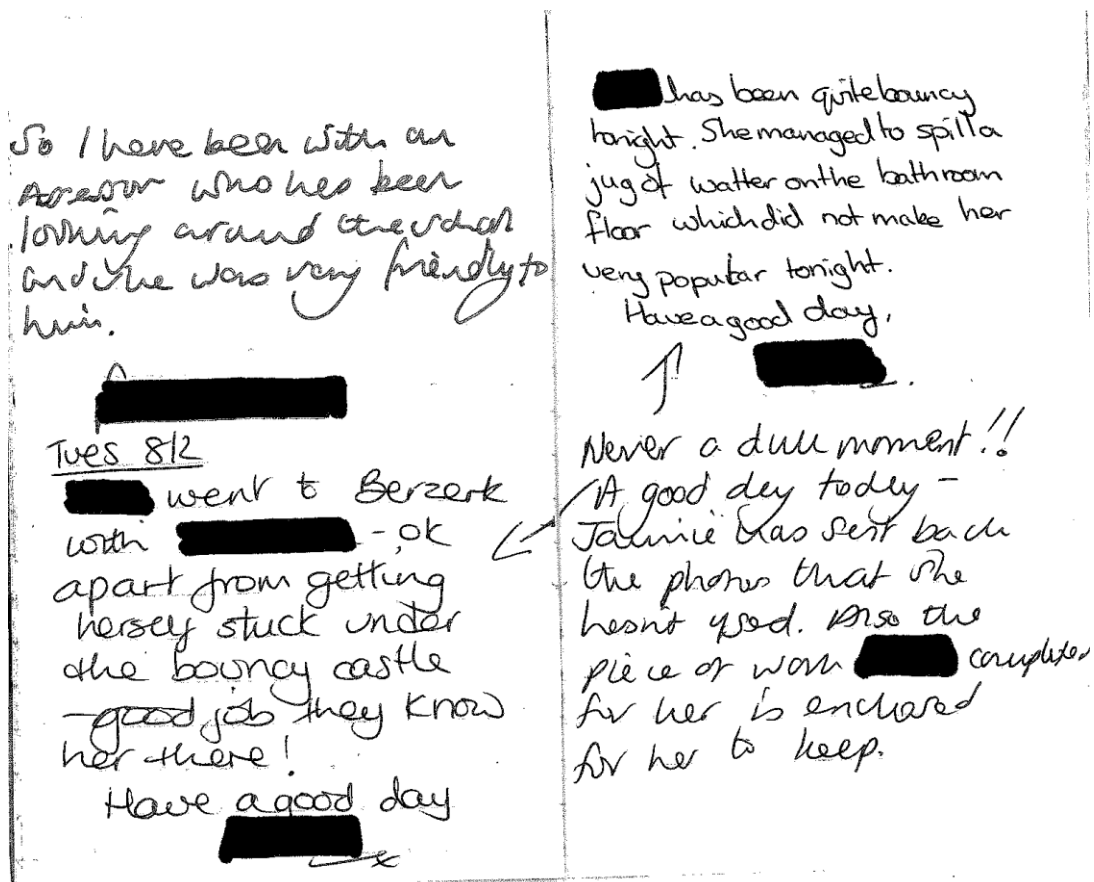 So I have been with an
Assessor who has been
looking around the school
and she was very friendly to
him.
Tues 8/2
went to Berzerk
with - ok
apart from getting
hersey stuck under
the bouncy castle
- good job they know
her there!
Have a good day
x
has been quite bouncy
tonight. She managed to spill a
jug of watter on the bathroom
floor which did not make her
very popular tonight.
Have a good day,
Never a dull moment!!
A good day today -
has sent back
the photos that she
hasnt used. Also the
piece of work completed
for her is enclosed
for her to keep.